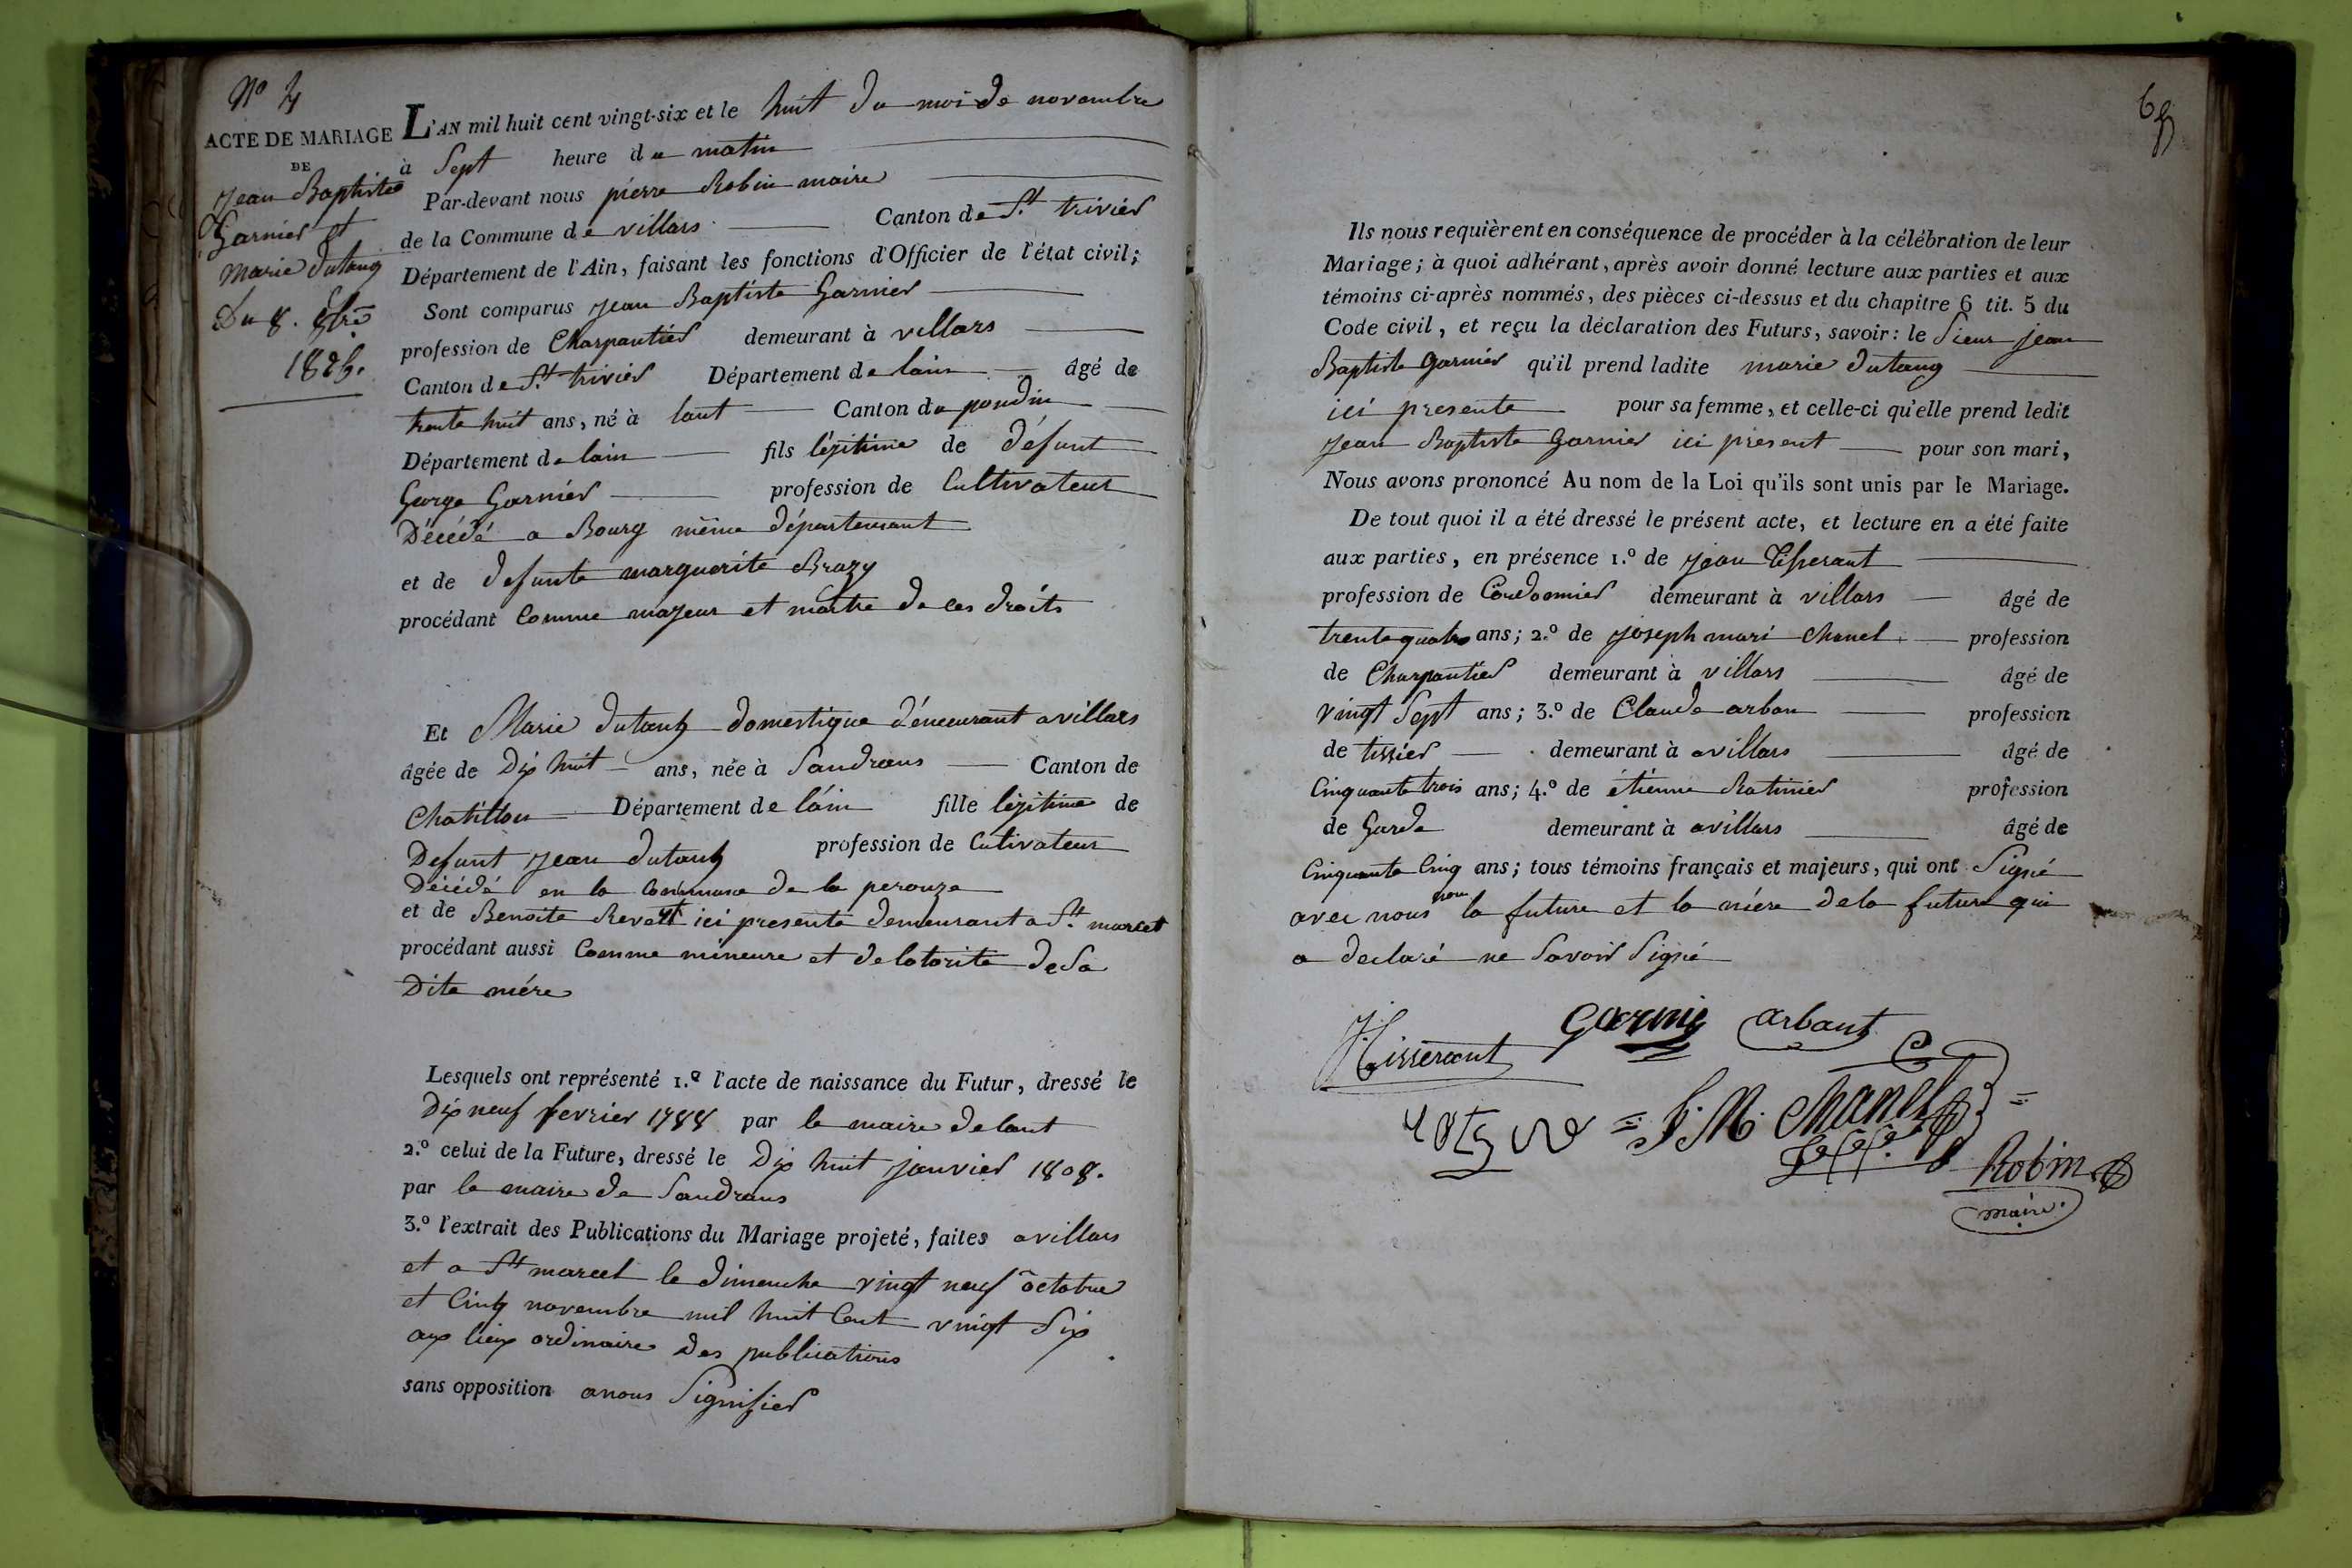 No 4
ACTE DE MARIAGE
DE
Jean Baptiste
Garnier et
marie dutang
Du 8. 9bre
1826.
L'AN mil huit cent vingt-six et le huit du mois de novembre
à Sept heure du matin
Par-devant nous pierre Robin maire
de la Commune de villars Canton de St. trivier
Département de l'Ain, faisant les fonctions d'Officier de l'état civil;
Sont comparus Jean Baptiste Garnier
profession de Charpantier demeurant à villars
Canton de St. trivier Département de lain âgé de
trente huit ans, né à laut Canton du pondin
Département de lain fils légitime de défunt
George Garnier profession de Cultivateur
Décédé a Bourg même départemant
et de defunte marguerite Brazy
procédant Comme majeur et maitre de ces droits
Et Marie dutang domestique démeurant a villars
âgée de Dix huit ans, née à Sandrans Canton de
Chatillon Département de láin fille légitime de
Defunt Jean dutang profession de Cutivateur
Décédé en la Commune de la perouze
et de Benoite Revest ici presente demeurant a St. marcel
procédant aussi Comme mineure et de lotorite de Sa
Dite mére
Lesquels ont représenté 1.º l'acte de naissance du Futur, dressé le
Dix neuf fevrier 1788 par le maire de laut
2.º celui de la Future, dressé le Dix huit janvier 1808.
par le maire de Sandrans
3.º l'extrait des Publications du Mariage projeté, faites a villars
et a St marcel le dimenche vingt neuf octobre
et Cinq novembre mil huit Cent vingt Six
aux lieux ordinaire des publications
sans opposition a nous Signifier
Ils nous requièrent en conséquence de procéder à la célébration de leur
Mariage; à quoi adhérant, après avoir donné lecture aux parties et aux
témoins ci-après nommés, des pièces ci-dessus et du chapitre 6 tit. 5 du
Code civil, et reçu la déclaration des Futurs, savoir: le Sieur jean
Baptiste garnier qu'il prend ladite marie dutang
ici presente pour sa femme, et celle-ci qu'elle prend ledit
Jean Baptiste Garnier ici présent pour son mari,
Nous avons prononcé Au nom de la Loi qu'ils sont unis par le Mariage.
De tout quoi il a été dressé le présent acte, et lecture en a été faite
aux parties, en présence 1.º de Jean tisserant
profession de Cordonnier demeurant à villars âgé de
trente quatre ans; 2.º de Joseph mari Chanel profession
de Charpantier demeurant à villars âgé de
vingt Sept ans; 3.º de Claude arban profession
de tissier demeurant à a villars âgé de
Cinquante trois ans; 4.º de étienne Ratinier profession
de Garde demeurant à a villars âgé de
Cinquante Cinq ans; tous témoins français et majeurs, qui ont Signé
avec nous non la future et la mére de la future qui
a declaré ne Savoir Signé
J. tisserant Garnie arbant
J. M. Chanel
Robin
maire.